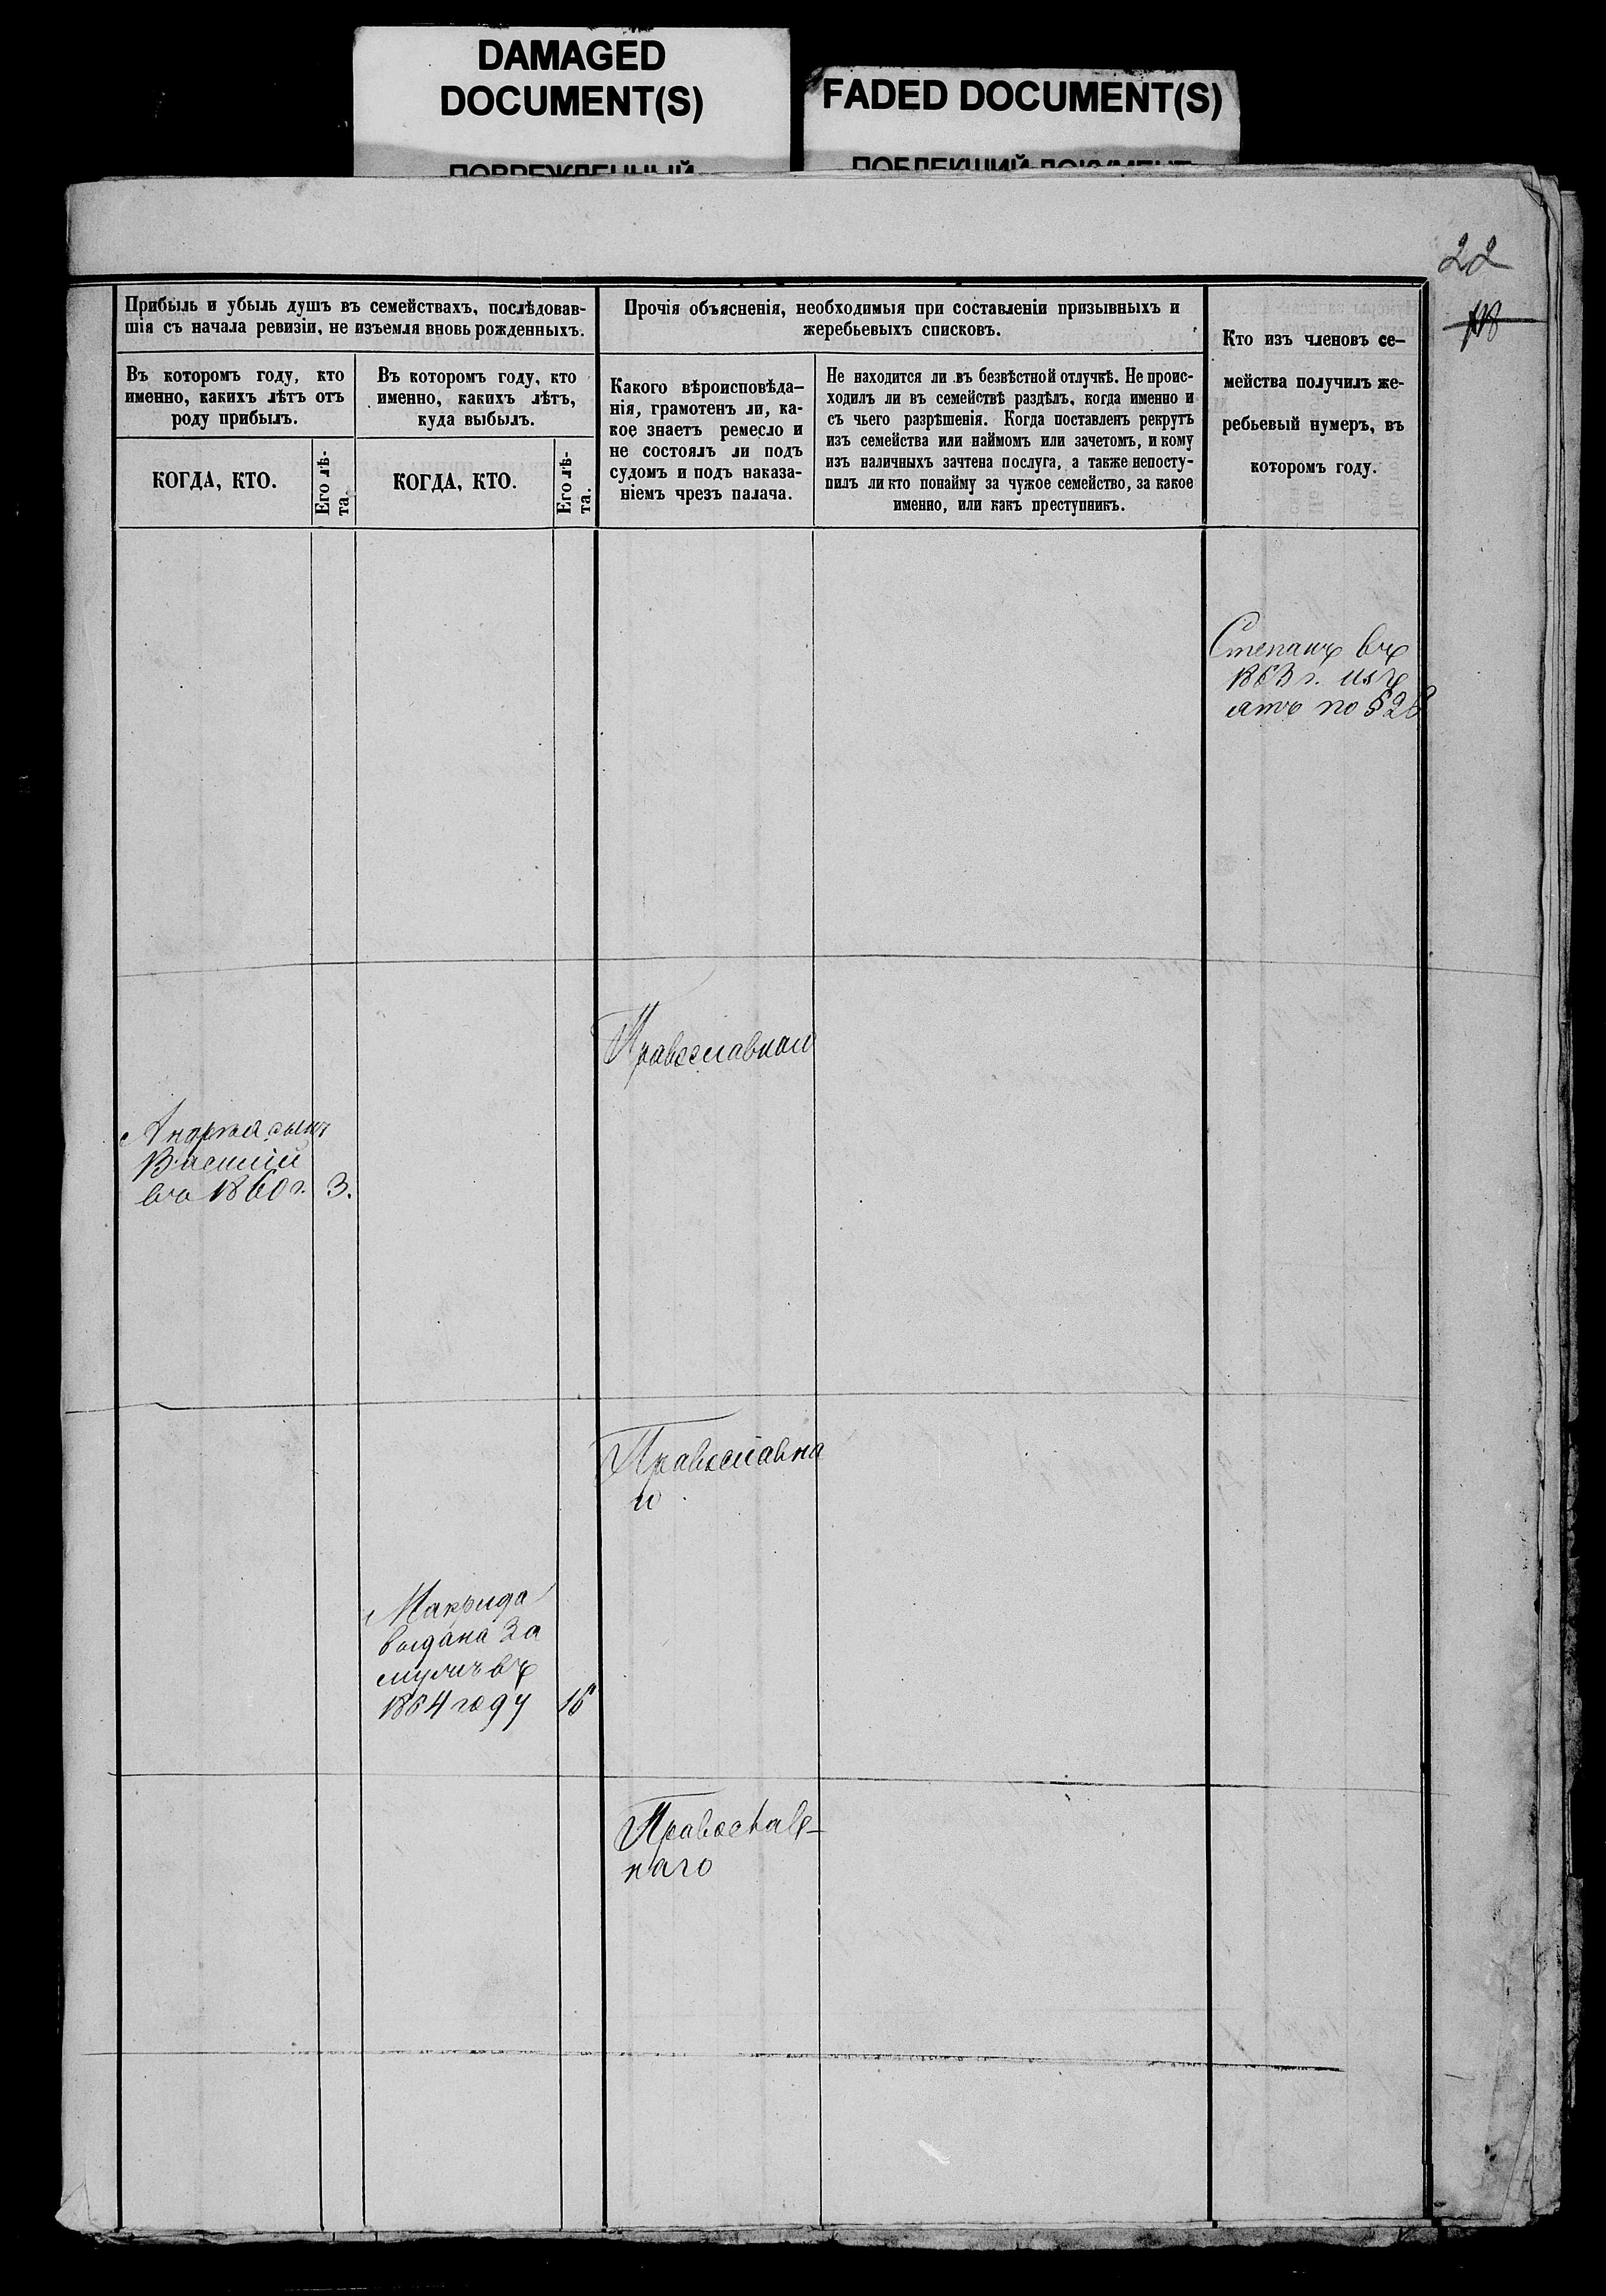 DAMAGED
DOCUMENT(S)
ПОВРЕЖДЕННЫЙ
FADED DOCUMENT(S)
ПОБЛЕКШИЙ ДОКУМЕНТ
22
Прибыль и убыль душъ въ семействахъ, послѣдовав-
шія съ начала ревизіи, не изъемля вновь рожденныхъ.
Въ которомъ году, кто
именно, какихъ лѣтъ отъ
роду прибылъ.
КОГДА, КТО.
Его лѣ-
та.
Въ которомъ году, кто
именно, какихъ лѣтъ,
куда выбылъ.
КОГДА, КТО.
Его лѣ-
та.
Прочія объясненія, необходимыя при составленіи призывныхъ и
жеребьевыхъ списковъ.
Какого вѣроисповѣда-
нія, грамотенъ ли, ка-
кое знаетъ ремесло и
не состоялъ ли подъ
судомъ и подъ наказа-
ніемъ чрезъ палача.
Не находится ли въ безвѣстной отлучкѣ. Не проис-
ходилъ ли въ семействѣ раздѣлъ, когда именно и
съ чьего разрѣшенія. Когда поставленъ рекрутъ
изъ семейства или наймомъ или зачетомъ, и кому
изъ наличныхъ зачтена послуга, а также непосту-
пилъ ли кто понайму за чужое семейство, за какое
именно, или какъ преступникъ.
Кто изъ членовъ се-
мейства получилъ же-
ребьевый нумеръ, въ
которомъ году.
Степанъ въ
1863 г. изъ
ятъ по §28
Православнаго
Андрея сынъ
Василій
въ 1860 г. 3.
Православна
го
Макрида
выдана за
мужъ въ
1864 году 16
Православ-
наго